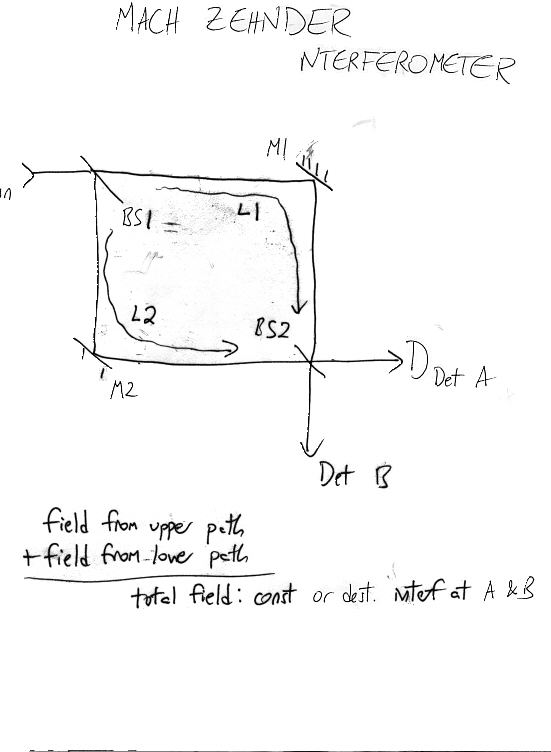 MACH ZEHNDER
NTERFEROMETER
M1
in
BS1
L1
L2
BS2
M2
D Det A
Det B
field from upper path
+ field from lower path
total field: const or dest. intef at A & B